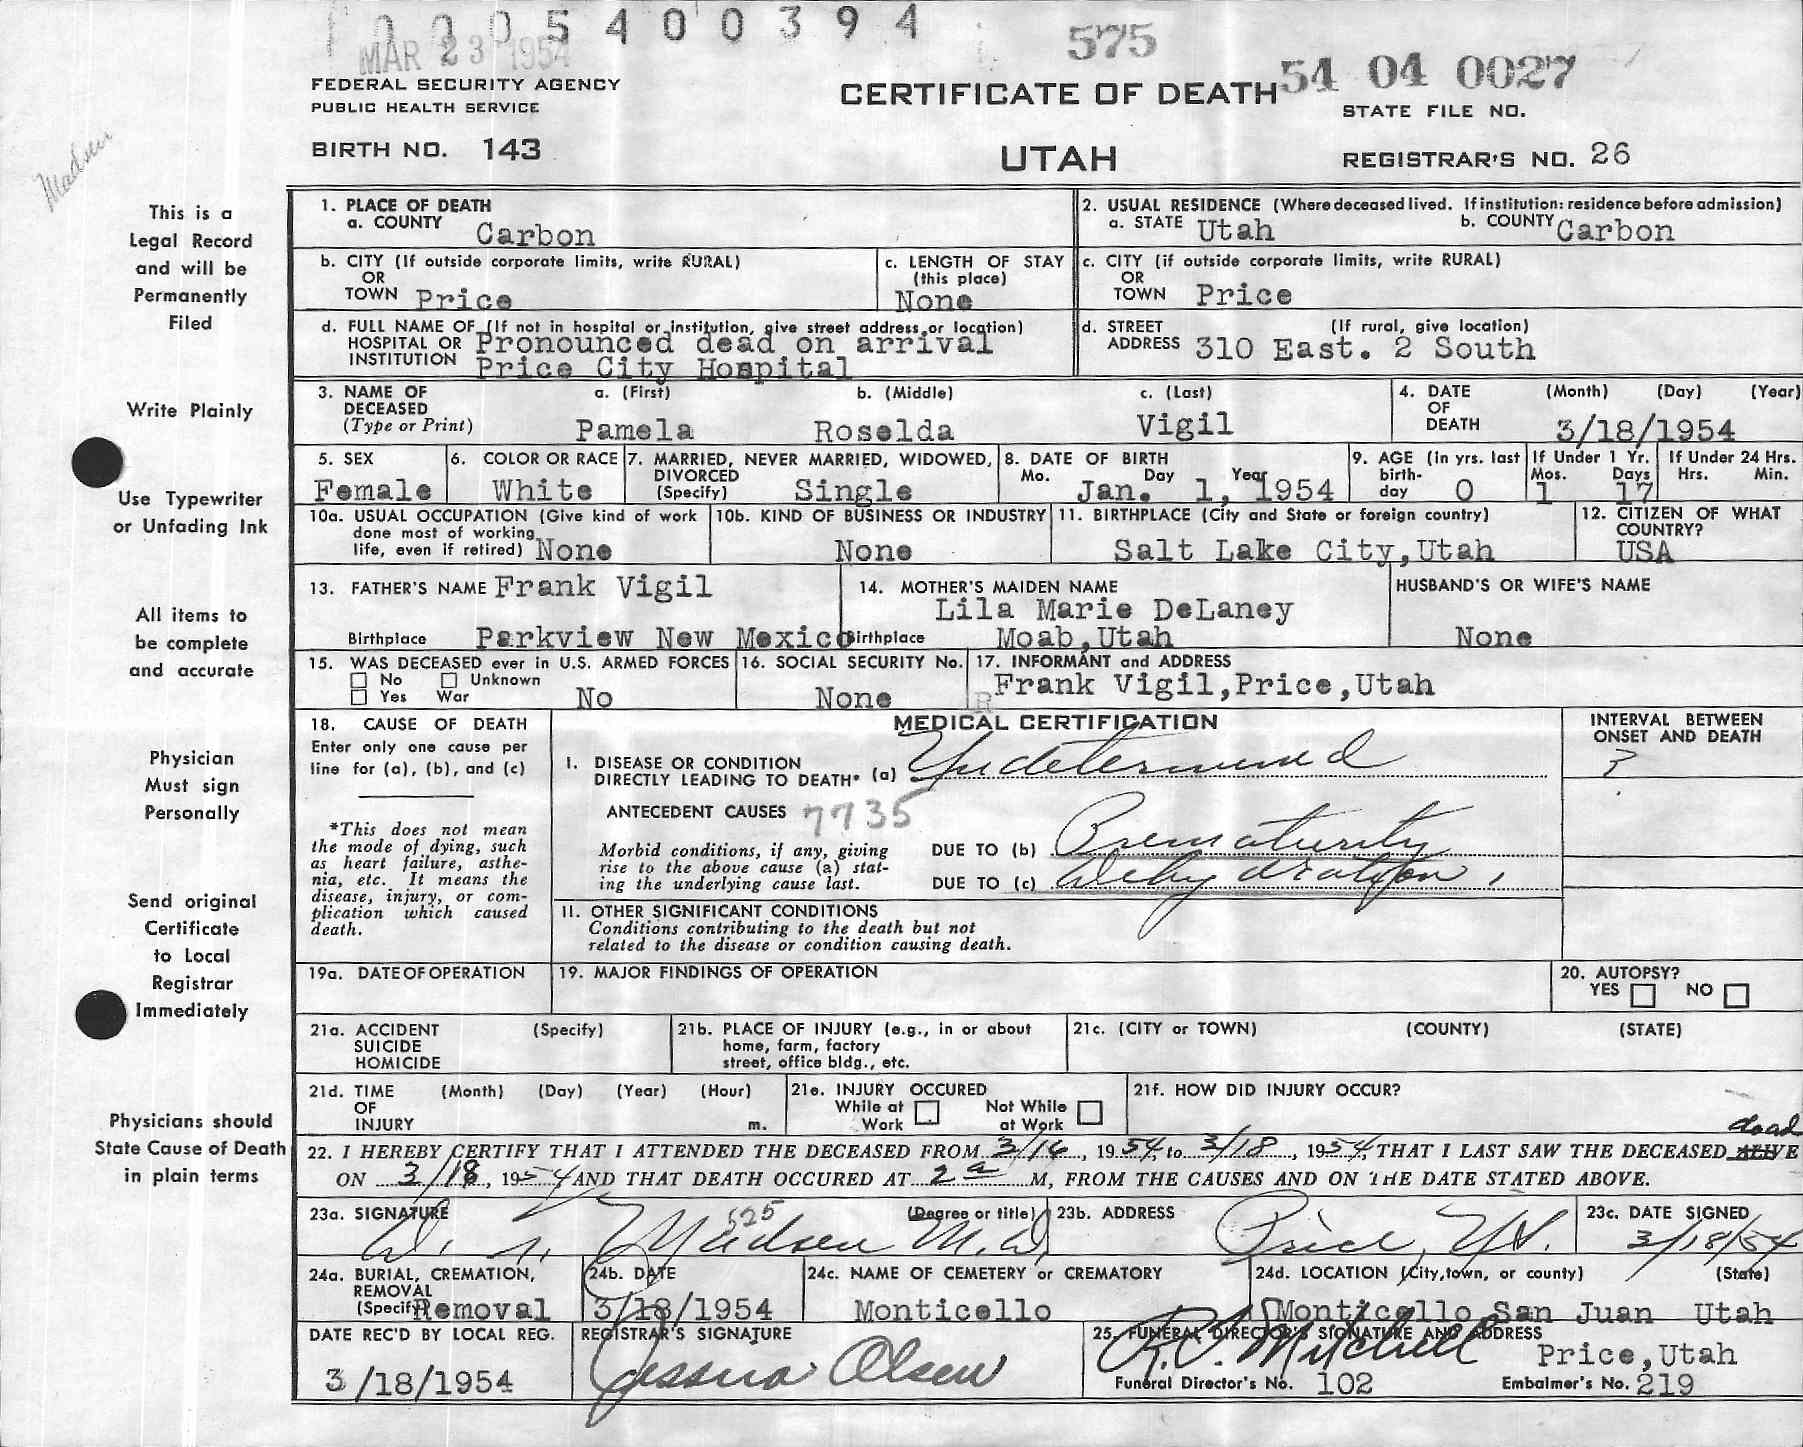 5 4 0 0 3 9 4
MAR 23 1954
575
54 04 0027
FEDERAL SECURITY AGENCY
PUBLIC HEALTH SERVICE
CERTIFICATE OF DEATH
STATE FILE NO.
BIRTH NO. 143
UTAH
REGISTRAR'S NO. 26
Madsen
This is a
Legal Record
and will be
Permanently
Filed
Write Plainly
Use Typewriter
or Unfading Ink
All items to
be complete
and accurate
Physician
Must sign
Personally
Send original
Certificate
to Local
Registrar
Immediately
Physicians should
State Cause of Death
in plain terms
1. PLACE OF DEATH
a. COUNTY Carbon
2. USUAL RESIDENCE (Where deceased lived. If institution: residence before admission)
a. STATE Utah b. COUNTY Carbon
b. CITY (If outside corporate limits, write RURAL)
OR
TOWN Price
c. LENGTH OF STAY
(this place)
None
c. CITY (if outside corporate limits, write RURAL)
OR
TOWN Price
d. FULL NAME OF (If not in hospital or institution, give street address or location)
HOSPITAL OR Pronounced dead on arrival
INSTITUTION Price City Hospital
d. STREET (If rural, give location)
ADDRESS 310 East. 2 South
3. NAME OF a. (First) b. (Middle) c. (Last)
DECEASED
(Type or Print) Pamela Roselda Vigil
4. DATE (Month) (Day) (Year)
OF
DEATH 3/18/1954
5. SEX
Female
6. COLOR OR RACE
White
7. MARRIED, NEVER MARRIED, WIDOWED,
DIVORCED
(Specify) Single
8. DATE OF BIRTH
Mo. Day Year
Jan. 1, 1954
9. AGE (in yrs. last
birth-
day 0
If Under 1 Yr.
Mos. Days
1 17
If Under 24 Hrs.
Hrs. Min.
10a. USUAL OCCUPATION (Give kind of work
done most of working
life, even if retired) None
10b. KIND OF BUSINESS OR INDUSTRY
None
11. BIRTHPLACE (City and State or foreign country)
Salt Lake City,Utah
12. CITIZEN OF WHAT
COUNTRY?
USA
13. FATHER'S NAME Frank Vigil
Birthplace Parkview New Mexico
14. MOTHER'S MAIDEN NAME
Lila Marie DeLaney
Birthplace Moab,Utah
HUSBAND'S OR WIFE'S NAME
None
15. WAS DECEASED ever in U.S. ARMED FORCES
No Unknown
Yes War No
16. SOCIAL SECURITY No.
None
17. INFORMANT and ADDRESS
R Frank Vigil,Price,Utah
18. CAUSE OF DEATH
Enter only one cause per
line for (a), (b), and (c)
*This does not mean
the mode of dying, such
as heart failure, asthe-
nia, etc. It means the
disease, injury, or com-
plication which caused
death.
MEDICAL CERTIFICATION
I. DISEASE OR CONDITION
DIRECTLY LEADING TO DEATH* (a) Undetermined
ANTECEDENT CAUSES 7735
Morbid conditions, if any, giving
rise to the above cause (a) stat-
ing the underlying cause last.
DUE TO (b) Prematurity
DUE TO (c) Dehydration,
II. OTHER SIGNIFICANT CONDITIONS
Conditions contributing to the death but not
related to the disease or condition causing death.
INTERVAL BETWEEN
ONSET AND DEATH
?
19a. DATE OF OPERATION
19. MAJOR FINDINGS OF OPERATION
20. AUTOPSY?
YES NO
21a. ACCIDENT (Specify)
SUICIDE
HOMICIDE
21b. PLACE OF INJURY (e.g., in or about
home, farm, factory
street, office bldg., etc.
21c. (CITY or TOWN) (COUNTY) (STATE)
21d. TIME (Month) (Day) (Year) (Hour)
OF
INJURY m.
21e. INJURY OCCURED
While at Not While
Work at Work
21f. HOW DID INJURY OCCUR?
dead
22. I HEREBY CERTIFY THAT I ATTENDED THE DECEASED FROM 3/16, 1954, to 3/18, 1954, THAT I LAST SAW THE DECEASED ALIVE
ON 3/18, 1954 AND THAT DEATH OCCURED AT 2 a M, FROM THE CAUSES AND ON THE DATE STATED ABOVE.
23a. SIGNATURE 525 (Degree or title)
Madsen M.D.
23b. ADDRESS
Price, Ut.
23c. DATE SIGNED
3/18/54
24a. BURIAL, CREMATION,
REMOVAL
(Specify) Removal
24b. DATE
3/18/1954
24c. NAME OF CEMETERY or CREMATORY
Monticello
24d. LOCATION (City,town, or county) (State)
Monticello San Juan Utah
DATE REC'D BY LOCAL REG.
3/18/1954
REGISTRAR'S SIGNATURE
Olsen
25. FUNERAL DIRECTOR'S SIGNATURE AND ADDRESS
Mitchell Price,Utah
Funeral Director's No. 102 Embalmer's No. 219